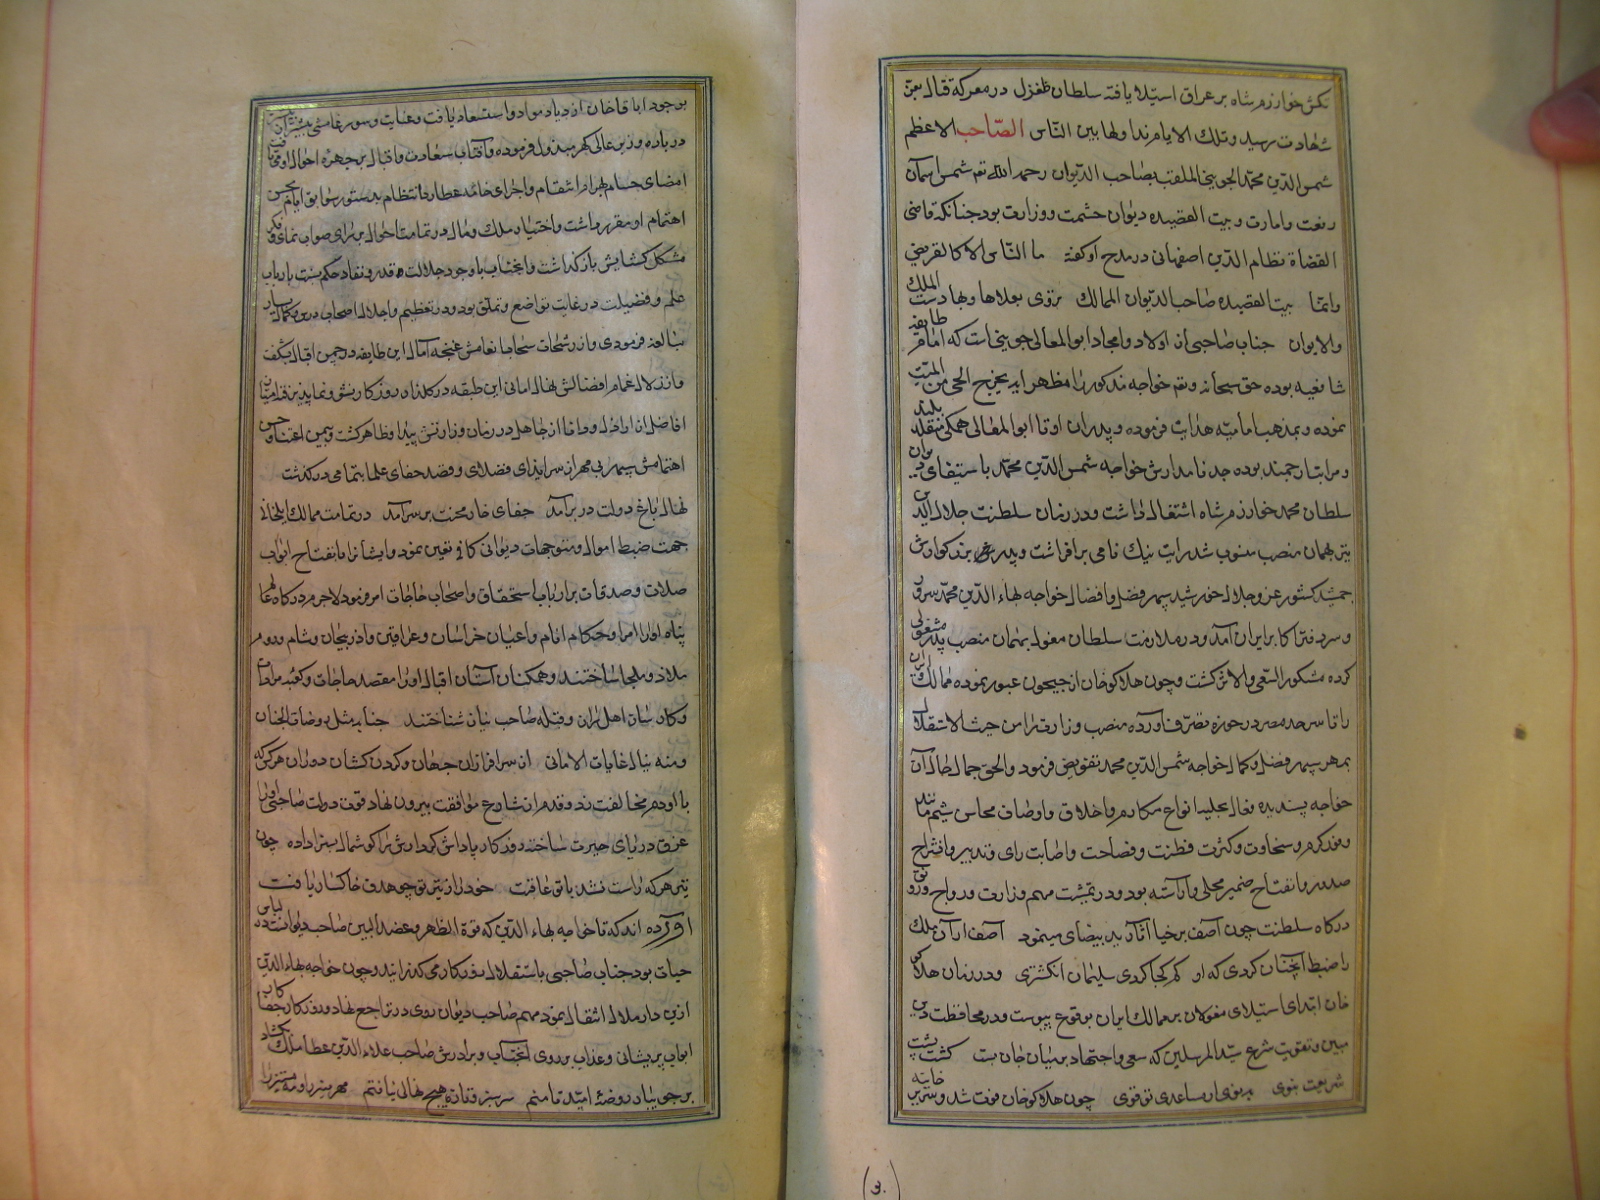 تکش خوارزم شاه بر عراق استیلا یافته سلطان طغرل در معرکه قتال بعز
شهادت رسید و تلک الایام نداولها بین الناس الصاحب الاعظم
شمس الدین محمد الجوینی الملقب بصاحب الدیوان رحمه الله تع شمس آسمان
رفعت و امارت و بیت القصیده دیوان حشمت و وزارت بود چنانکه قاضی
القضاة نظام الدین اصفهانی در مدح او گفته ما الناس الا کالقریض
وانما بیت القصیده صاحب الدیوان الممالک بعلاها وبهادست الملک
والایوان جناب صاحبی از اولاد و امجاد ابو المعالی جوینی است که امام طایفه
شافعیه بوده حق سبحانه و تع خواجه مذکور را مظهر ایه یخرج الحی من المیت
نموده و بمذهب امامیه هدایت فرموده و پدران او تا ابو المعالی همگی متقلد
و مراتب ارجمند بوده جد نامدارش خواجه شمس الدین محمد باستیفای دیوان
سلطان محمد خوارزم شاه اشتغال داشت و در زمان سلطنت جلال الدین
نیز بهمان منصب منسوب شد رایت نیک نامی برافراشت و پدر بزرگوارش
جمشید کشور عز و جلال خورشید سپهر فضل و افضال خواجه بهاء الدین محمد سرور
و سر دفتر اکابر ایران آمد و در ملازمت سلطان مغول بهمان منصب پدر مشغولی
کرده مشکور السعی والاثر گشت و چون هلاکو خان از جیحون عبور نموده ممالک ایران
را تا سرحد مصر در حوزه تصرف آورده منصب وزارت را من حیث الاستقلال
بمهر سپهر فضل و کمال خواجه شمس الدین محمد تفویض فرمود والحق جمال حال آن
خواجه پسندیده فعال بحلیه انواع مکارم و اخلاق و اوصاف محاسن شیم مانند
وفور کرم و سخاوت و کثرت فطنت و فصاحت و اصابت رای و تدبیر و انشراح
صدور و انفتاح ضمیر محلی و آراسته بود و در تمشیت مهم وزارت و رواج و رونق
درگاه سلطنت چون آصف برخیا آثار ید بیضای مینمود آصف ار آن ملک
را ضبط آنچنان کردی که او کم کجا کردی سلیمان انگشتری و در زمان هلاکو
خان ابتدای استیلای مغولان بر ممالک ایران بوقوع پیوست و در محافظت دین
مبین و تقویت شرع سید المرسلین که سعی و اجتهاد بر میان جان بست گشت پشت
شریعت نبوی ساعدی تو قوی چون هلاکو خان فوت شد و سریر خانیه
بوجود اباقا خان ازدیاد مواد و استسعاد یافت و عنایت و سور غامشی بیشتر از آن
درباره وزیر عالی گهر مبذول فرموده و آفتاب سعادت و اقبال بر چهره احوال او تافت
امضای حسام بهرام انتقام و اجرای خامه عطارد انتظام بدستور سوابق ایام بحسن
اهتمام او مقرر داشت و اختیار ملک و مال در تمامت احوال برای صواب نمای و فکر
مشکل گشایش باز گذاشت و آنجناب با وجود جلالت قدر و نفاد حکم نسبت بارباب
علم و فضیلت در غایت تواضع و تملق بود و در تعظیم و اجلال اصحاب درس و کمال بسیار
مبالغه فرمودی و از رشحات سحاب انعامش غنچه آمال این طایفه در چمن اقبال بشگفت
و از زلال غمام افضالش نهال امانی این طبقه در گلزار روزگار نشو و نما پذیرفت امتیاز
افاضل از اراذل و واقا از جاهل در زمان وزارتش پیدا و ظاهر گشت و بیمن اعتنا و حسن
اهتمامش سپهر بی مهر از سر ایذای فضلای و قصد جفای علما بتمامی در گذشت
نهال باغ دولت در بر آمد جفای خار محنت بر سر آمد در تمامت ممالک ایلخانی
جهت ضبط اموال و متوجهات دیوانی کافی تعیین نمود و ایشانرا بانفتاح ابواب
صلات و صدقات بر ارباب استحقاق و اصحاب حاجات امر فرمود لاجرم درگاه عالم
پناه او را امرا و حکام انام و اعیان خراسان و عراقین و آذربیجان و شام و روم
ملاذ و ملجا ساختند و همگنان آستان اقبال او را مقصد حاجات و کعبه مرادات
وکان بیان اهل ایران و قبله صاحب بیان شناختند جنابه مثل روضات الجنان
ومنه ینال غایات الامانی از سرافرازان جهان و گردن کشان دوران هر کس که
با او دم مخالفت زد و قدم از شارع موافقت بیرون نهاد قوت دولت صاحبی او را
غرق دریای حیرت ساخته روزگار پاداش کردارش را گوشمال بسزا داده چون
تیر هر که راست نشد با تو عاقبت خود را ز تیر تو چو هدف خاکسار یافت
آورده اند که تا خواجه بهاء الدین که قوة الظهر و عضد الیمین صاحب دیوانست در لباس
حیات بود جناب صاحبی باستقلال روزگار می گذرانید و چون خواجه بهاء الدین
ازین دار ملال انتقال نمود مهم صاحب دیوان روی در تراجع نهاد و روزگار جفا کار
ابواب پریشانی و عذاب بر روی آنجناب و برادرش صاحب علاء الدین عطا ملک بگشاد
بر جویبار روضه امید تا منم سرسبز و تازه هیچ نهالی نیافتم
(۳۰)